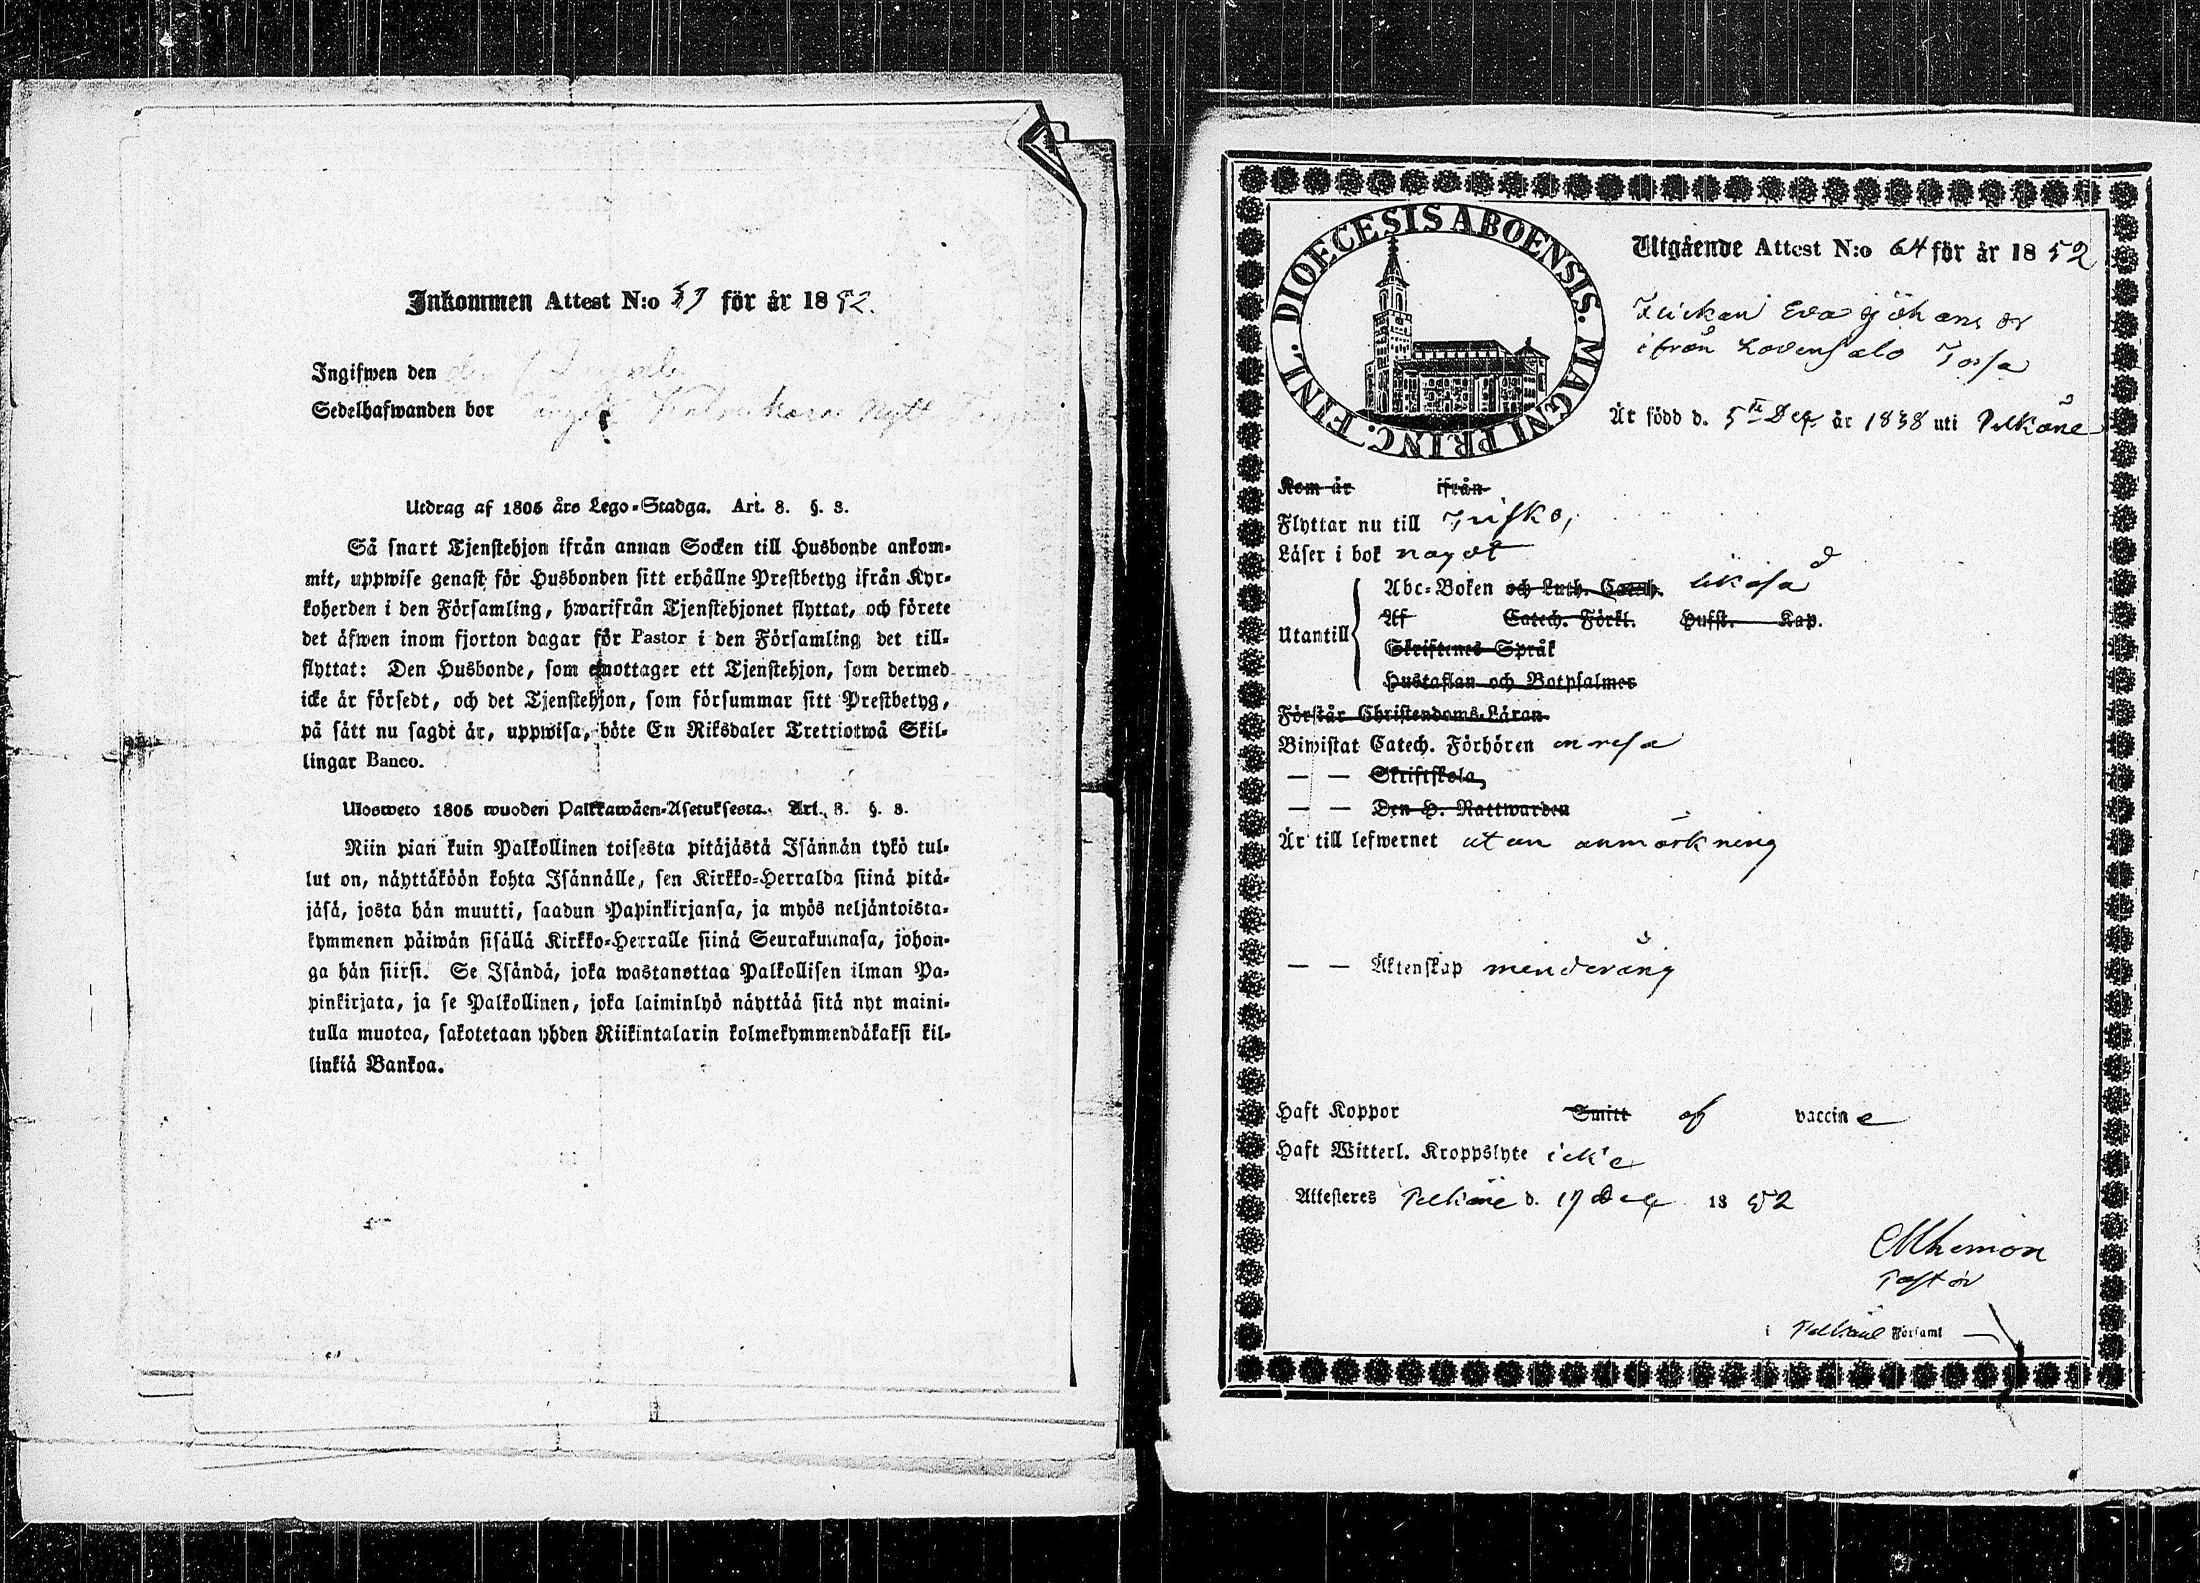 Inkommen Attest N:o 57 för år 1852.
Ingifwen den
Sedelhafwanden bor
Utdrag af 1805 års Lego-Stadga. Art. 8. §. 8.
Så snart Tjenstehjon ifrån annan Socken till Husbonde ankom-
mit, uppwise genast för Husbonden sitt erhållne Prestbetyg ifrån Kyr-
koherden i den Församling, hwarifrån Tjenstehjonet flyttat, och förete
det äfwen inom fjorton dagar för Pastor i den Församling det till-
flyttat: Den Husbonde, som emottager ett Tjenstehjon, som dermed
icke är försedt, och det Tjenstehjon, som försummar sitt Prestbetyg,
på sätt nu sagdt är, uppwisa, böte En Riksdaler Trettiotwå Skil-
lingar Banco.
Ulosweto 1805 wuoden Palkkawäen-Asetuksesta. Art. 8. §. 8.
Niin pian kuin Palkollinen toisesta pitäjästä Isännän tykö tul-
lut on, näyttäköön kohta Isännälle, sen Kirkko-Herralda siinä pitä-
jäsä, josta hän muutti, saadun Papinkirjansa, ja myös neljäntoista-
kymmenen päiwän sisällä Kirkko-Herralle siinä Seurakunnasa, johon-
ga hän siirsi. Se Isändä, joka wastanottaa Palkollisen ilman Pa-
pinkirjata, ja se Palkollinen, joka laiminlyö näyttää sitä nyt maini-
tulla muotoa, sakotetaan yhden Riikintalarin kolmekymmendäkaksi kil-
linkiä Bankoa.
DIOECESIS ABOENSIS. MAGNI PRINC. FINL.
Utgående Attest N:o 64 för år 1852
Flickan Eva Johans dr
ifrån
Är född d. 5te Dec. år 1838 uti Pelkäne
Kom år ifrån
Flyttar nu till
Läser i bok något
Utantill
Abc-Boken och Luth. Catech. likaså
Af Catech. Förkl. Hufst. Kap.
Skriftenes Språk
Hustaflan och Botpsalmer
Förstår Christendoms-Läran
Biwistat Catech. Förhören en resa
— — Skriftskola,
— — Den H. Nattwarden
Är till lefwernet utan anmärkning
— — Äktenskap minderårig
Haft Koppor Smitt af vaccine
Haft Witterl. Kroppslyte icke
Attesteres Pelkäne d. 17 Dec 1852
Pastor
i Pelkäne Församl